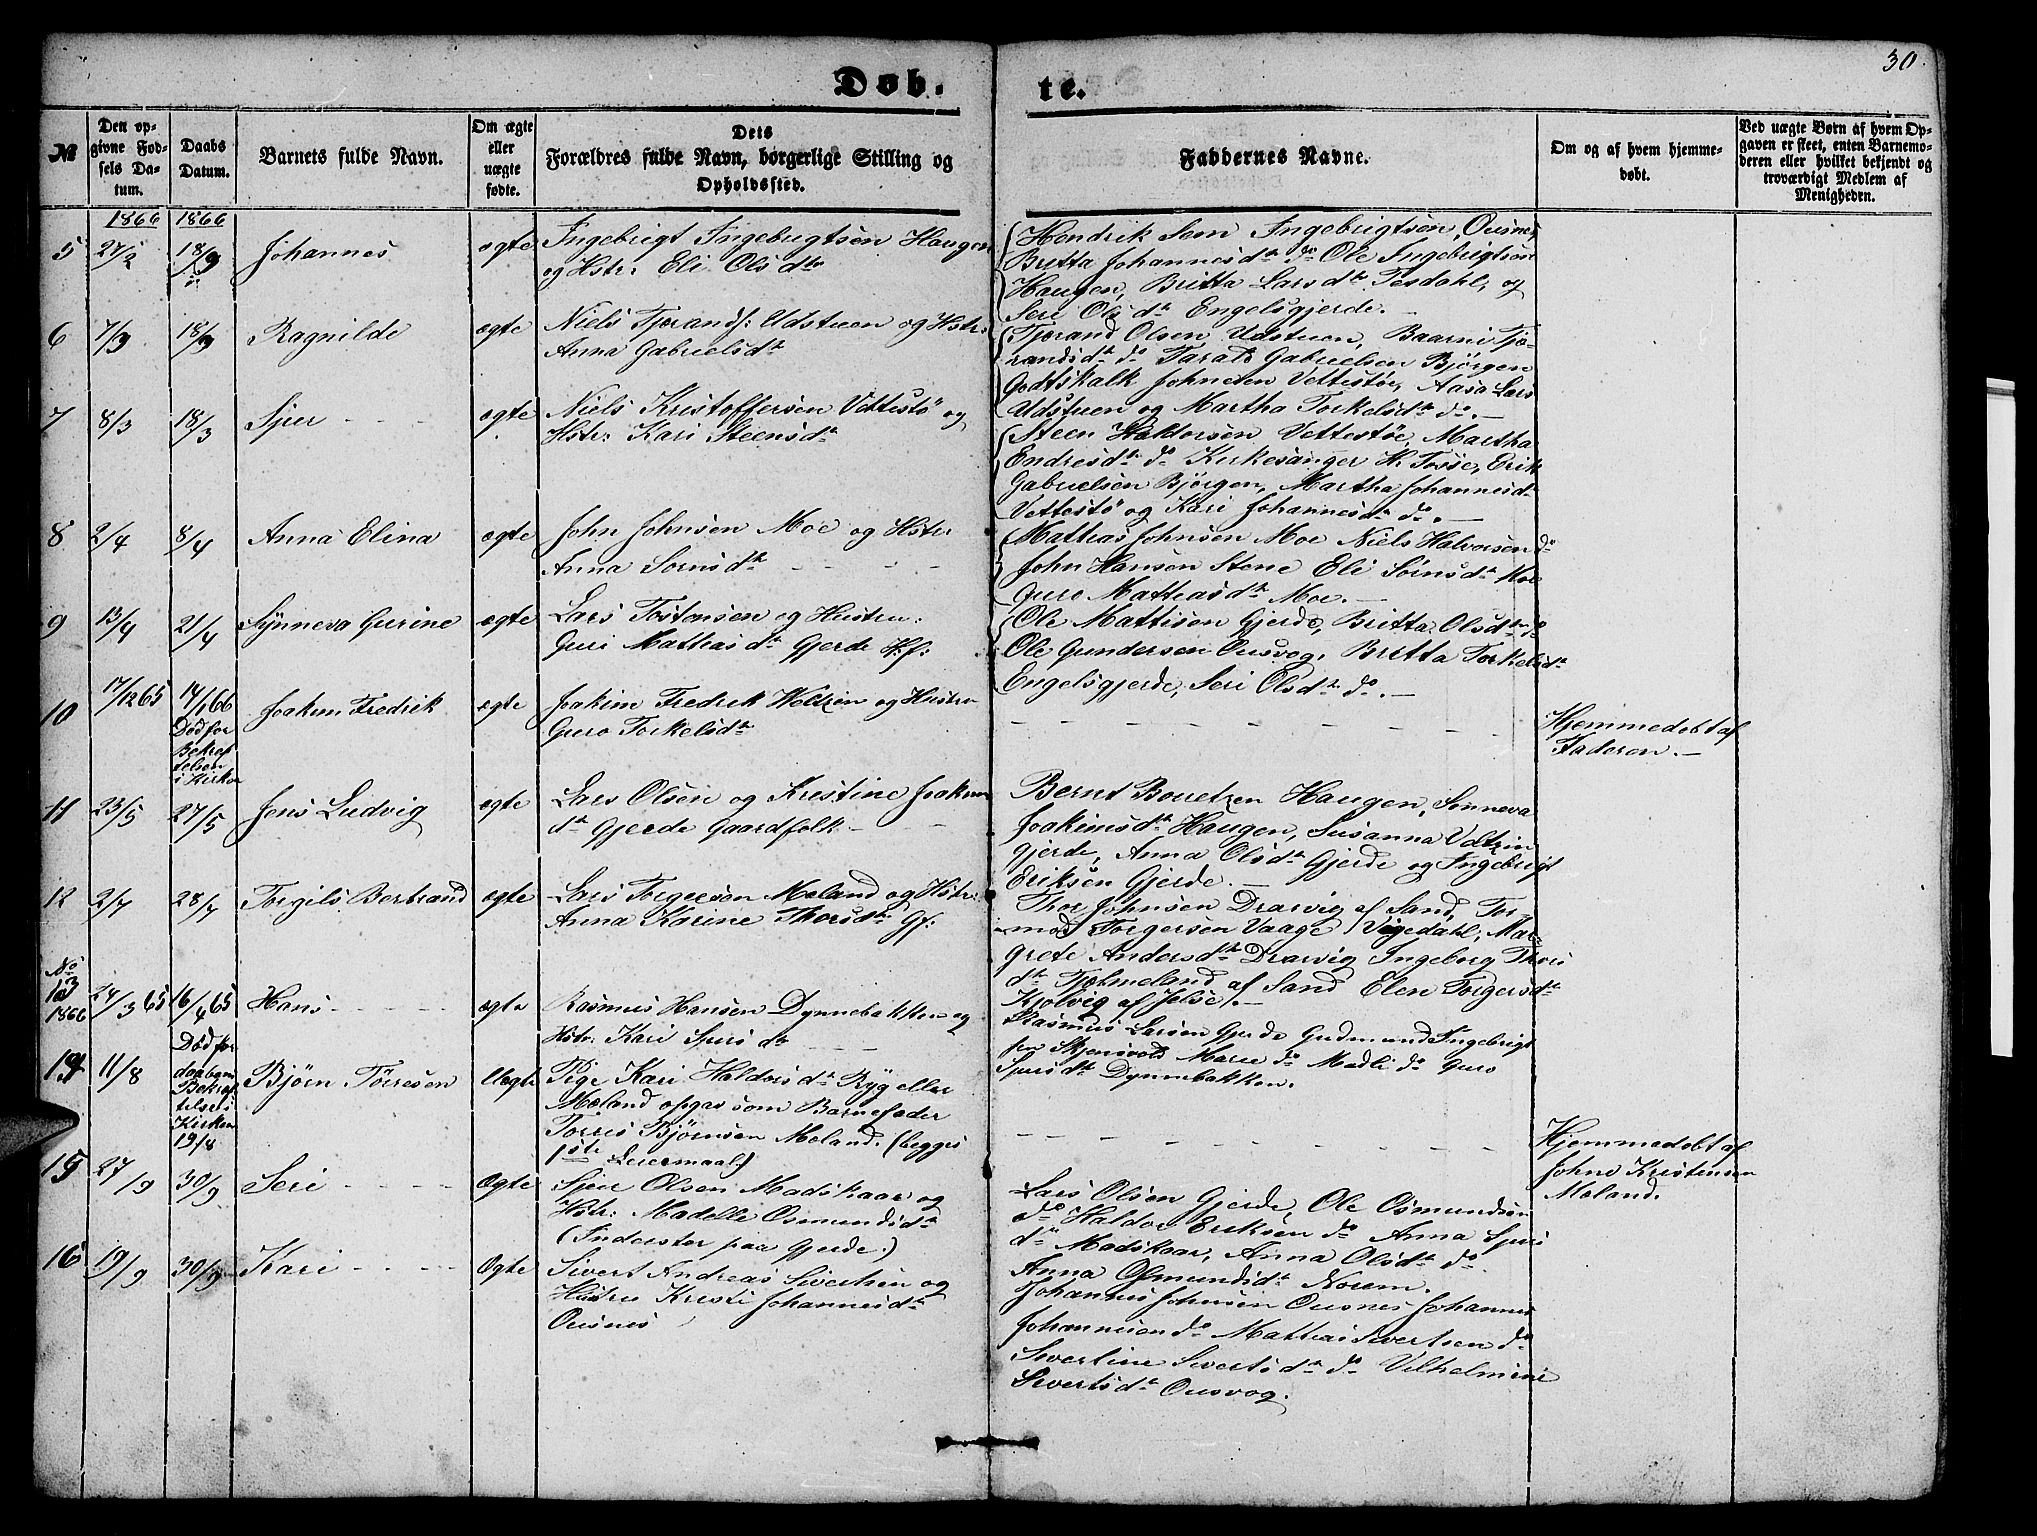 30.
Døb. te.
№
Den op-
givne Fød-
sels Da-
tum.
Daabs
Datum.
Barnets fulde Navn.
Om ægte
eller
uægte
fødte.
Dets
Forældres fulde Navn, borgerlige Stilling og
Opholdssted.
Faddernes Navne.
Om og af hvem hjemme-
døbt.
Ved uægte Børn af hvem Op-
gaven er skeet, enten Barnemo-
deren eller hvilket bekjendt og
troværdigt Medlem af
Menigheden.
1866 1866
5 27/2 18/3 Johannes ægte Ingebrigt Ingebrigtsen Haugen
og Hstr: Eli Olsdtr
Hendrik Sem Ingebrigtsen, Ousnes,
Britta Johannesdtr do Ole Ingebrigtsen
Haugen, Britta Larsdtr Tesdahl, og
Seri Olsdtr Engelsgjerde.
6 7/3 18/3 Ragnilde ægte Niels Tjerands: Udstuen og Hstr:
Anna Gabrielsdtr
Tjerand Olsen Udstuen, Baarni Tjæ-
randsdtr do Tarald Gabrielsen Bjørgen
Godtskalk Johnesen Vettestøe, Aasa Lars
Udstuen og Martha Torkelsdtr do.
7 8/3 18/3 Sjur ægte Niels Kristoffersen Vettestö og
Hstr: Kari Steensdtr
Steen Haldorsen Vettestøe, Martha
Endresdtr do Kirkesanger H. Tøsse, Erik
Gabrielsen Bjørgen, Martha Johannesdtr
Vettestö og Kari Johannesdtr do.
8 2/4 8/4 Anna Elina ægte John Johnsen Moe og Hstr
Anna Sørnsdtr
Mathias Johnsen Moe Niels Halvorsen do
John Hansen Stene Eli Sørnsdtr Moe
Guro Mathiasdtr Moe.
9 13/4 21/4 Synneva Gurine ægte Lars Tostensen og Hustru:
Guri Mathiasdtr Gjerde Hf:
Ole Mattisen Gjerde, Britta Olsdtr do
Ole Gundersen Ousvog, Britta Torkelsdtr
Engelsgjerde, Seri Olsdtr do.
10 17/12 65 14/1 66
Død før
Bekræf
telsen
i Kirken
Joakim Fredrik ægte Joakim Fredrik Weltzen og Hustru
Guro Torkelsdtr
Hjemmedøbt af
Faderen.
11 23/5 27/5 Jens Ludvig ægte Lars Olsen og Kristine Joakim
dtr Gjerde Gaardfolk
Bernt Boretzen Haugen, Sønneva
Joakimsdtr Haugen, Susanna Veltzin
Gjerde, Anna Olsdtr Gjerde og Ingebrigt
Eriksen Gjerde.
12 2/7 28/7 Torgils Bertrand ægte Lars Torgersen Mæland og Hstr:
Anna Karine Thorsdtr Gf:
Thor Johnsen Drarvig af Sand, Tor-
mod Torgersen Vaage / Vigedahl, Mar-
grete Andersdtr Drarvig Ingeborg Thors
dtr Tjelmeland af Sand Elen Torgersdtr
Kjølvig af Jelse.
No
13
1866
24/3 65 16/4 65 Hans ægte Rasmus Hansen Dynnebakken og
Hstr: Kari Sjursdtr
Rasmus Larsen Gjerde Gudmund Ingebrigt
sen Skjensvold Marie do Madli do Guro
Sjursdtr Dynnebakken.
14 11/8 Død før
daabens
Bekræf
telse i
Kirken
19/8
Bjørn Tørresen Uægte Pige Kari Haldorsdtr Ryg eller
Mæland opgav som Barnefader
Torres Bjørnsen Mæland. (begges
1ste Leiermaal)
Hjemmedøbt af
Johne Kristensen
Mæland.
15 27/9 30/9 Seri Ægte Sjur Olsen Madskaar og
Hstr: Madelle Osmundsdtr
(Inderster paa Gjerde.)
Lars Olsen Gjerde, Ole Osmundsen
do Haldor Eriksen do Anna Sjurs
dtr Madskaar, Anna Olsdtr do
Anna Osmundsdtr Norem.
16 19/9 30/9 Kari Ægte Sivert Andreas Sivertsen og
Hustru Kristi Johannesdtr
Ousnes
Johannes Johnsen Ousnes Johannes
Johannesen do Mathias Sivertsen do
Sivertine Sivertsdtr do Vilhelmine
Sivertsdtr Ousvog.